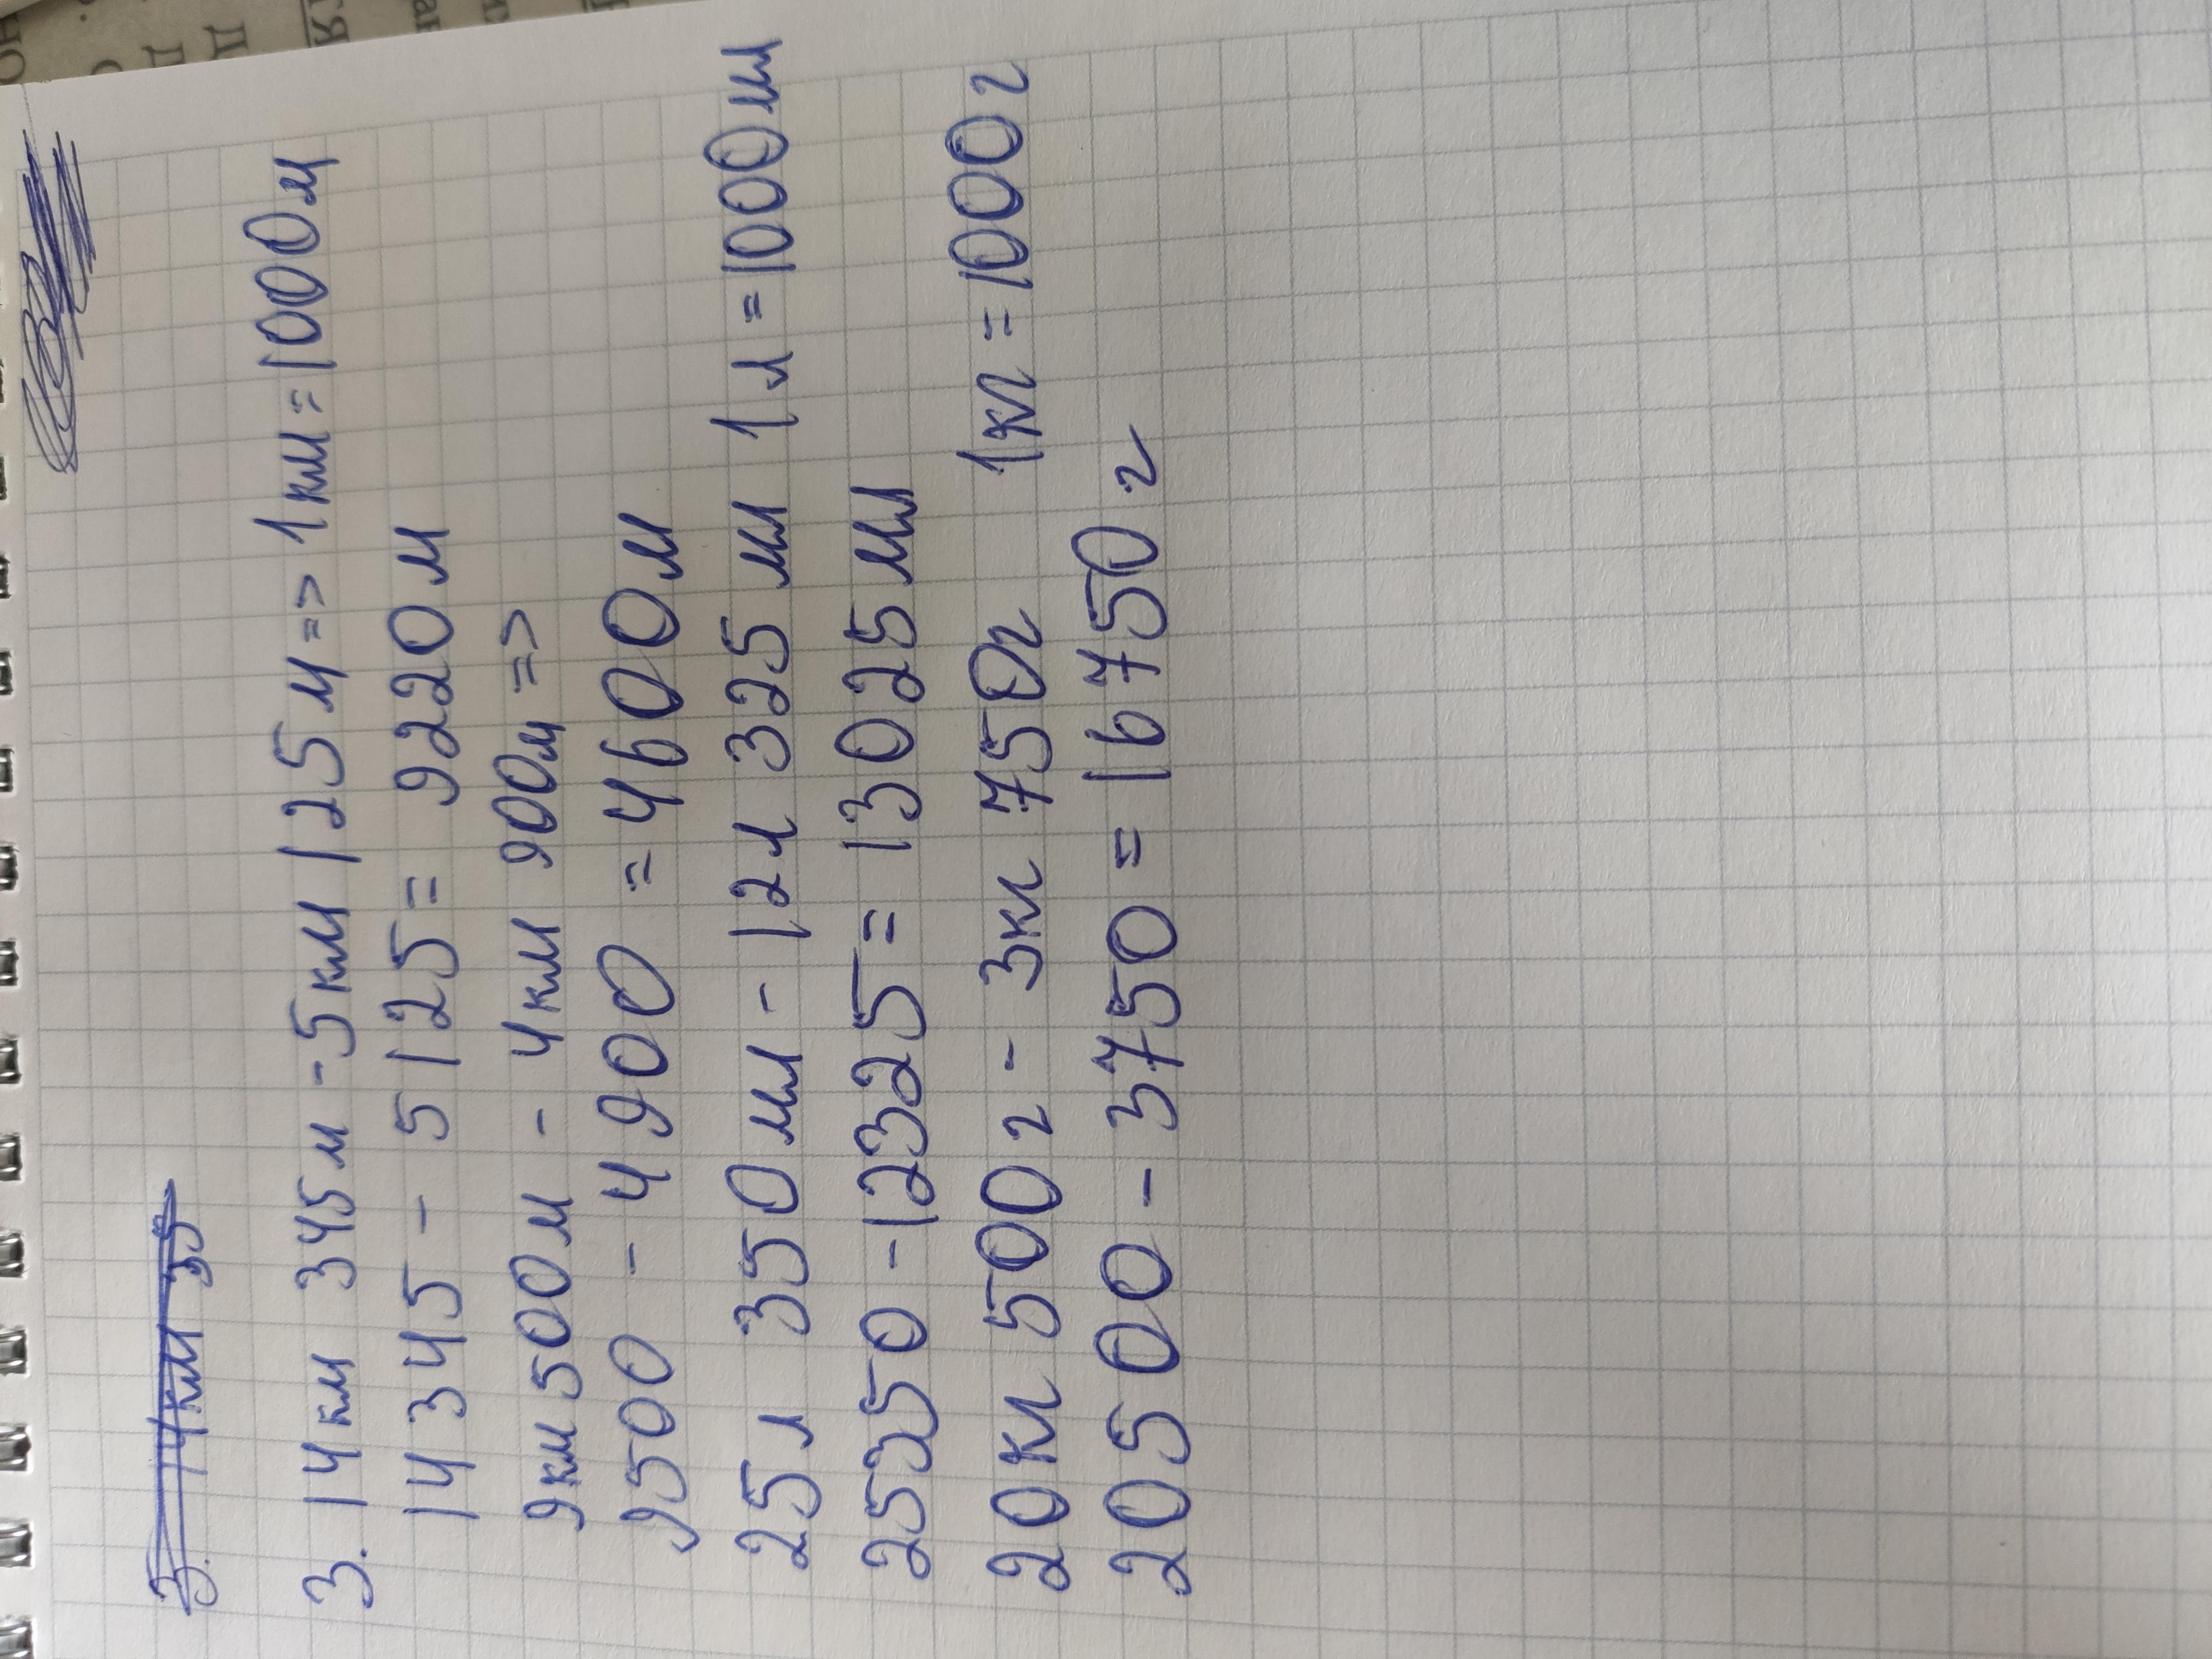 3. 14км 35
3. 14км 345м - 5км 125м => 1км = 1000м
14345 - 5125 = 9220м
9км 500м - 4км 900м =>
9500 - 4900 = 4600м
25л 350мл - 12л 325мл 1л = 1000мл
25350 - 12325 = 13025мл
20кг 500г - 3кг 750г 1кг = 1000г
20500 - 3750 = 16750г